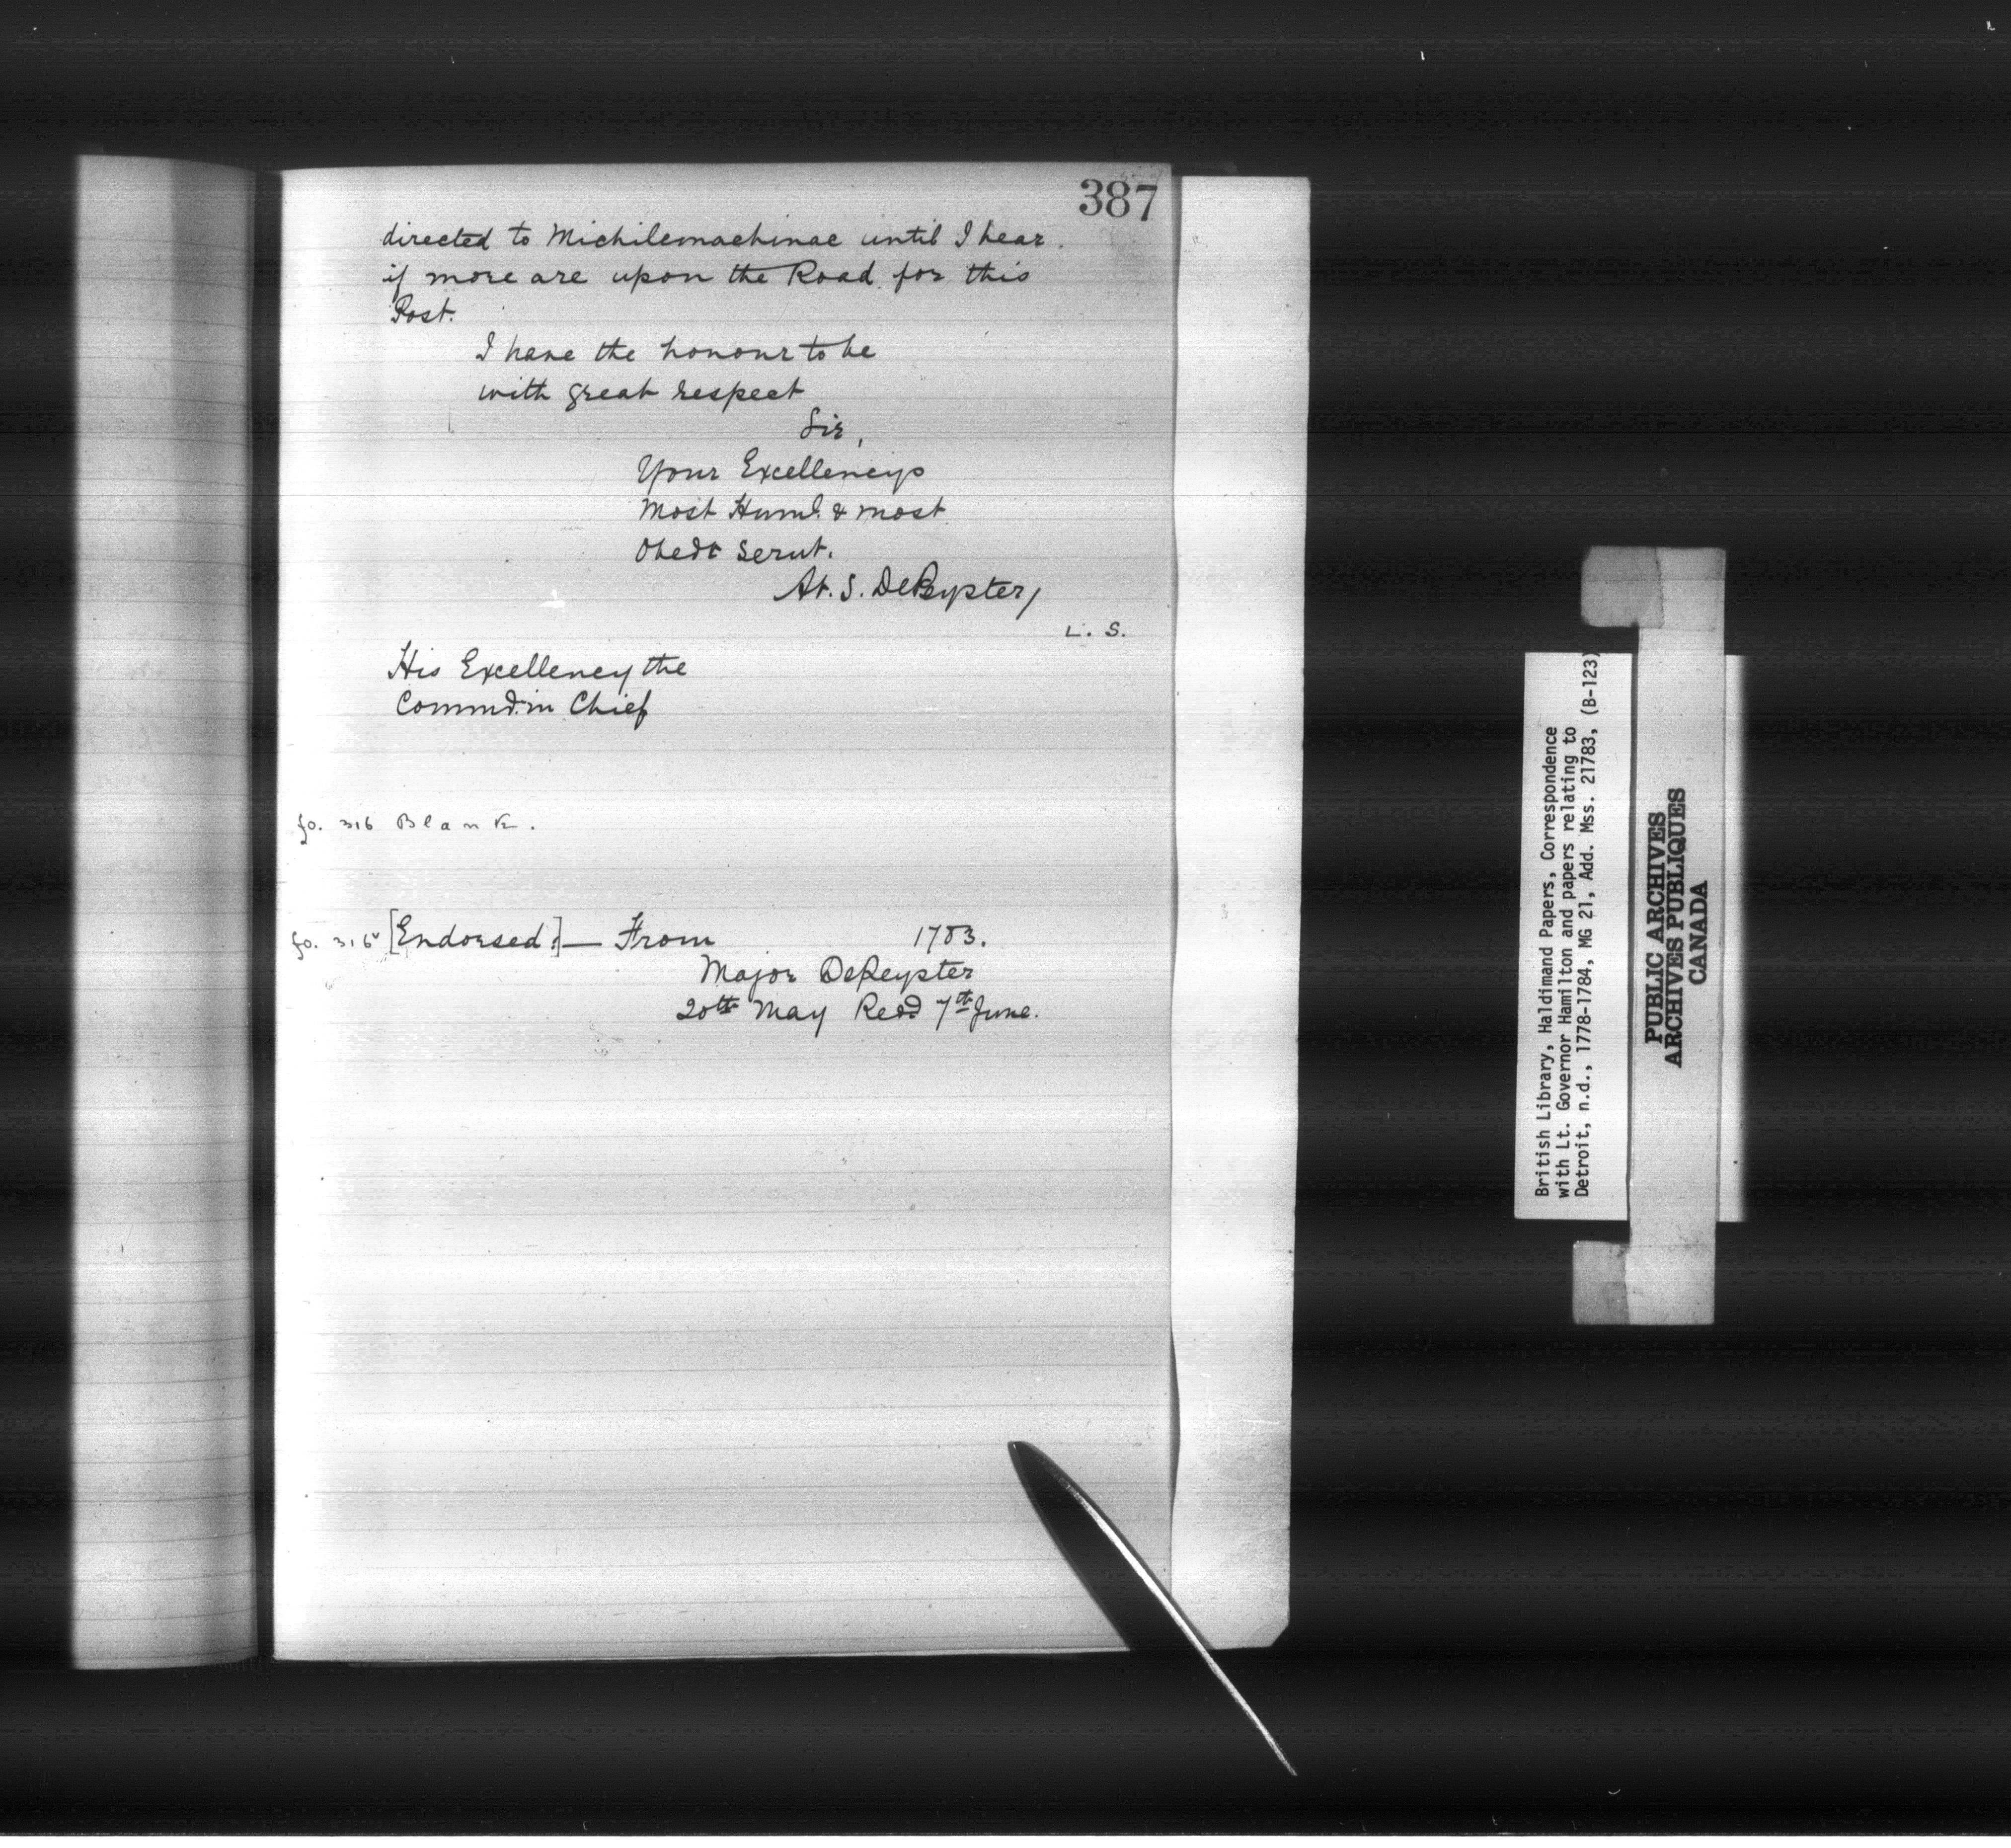 387
directed to Michilemachinac until I hear.
if more are upon the Road for this
Post.
I have the honour to be
with great respect
Sir,
Your Excellencys
Most Huml. & most
Obedt Servt.
At. S. DePeyster/
L. S.
His Excellency the
Commd. in Chief
fo. 316 Blank.
fo. 316v [Endorsed:] — From 1783.
Major DePeyster
20th May Recd. 7th June.
British Library, Haldimand Papers, Correspondence
with Lt. Governor Hamilton and papers relating to
Detroit, n.d., 1778-1784, MG 21, Add. Mss. 21783, (B-123)
PUBLIC ARCHIVES
ARCHIVES PUBLIQUES
CANADA